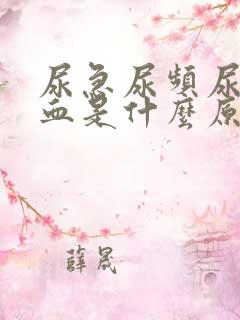 尿急尿頻尿
血是什麼原
薛晟